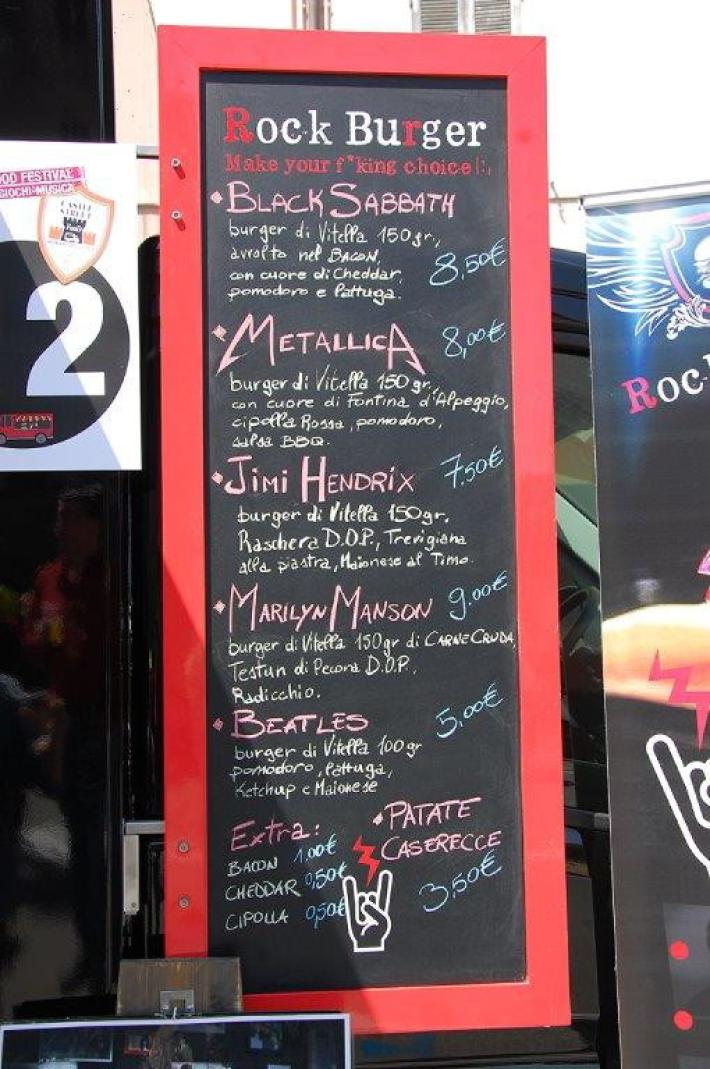 Rock Burger
Make your f*king choice!!
BLACK SABBATH
burger di Vitella 150gr,
avvolto nel BACON,
con cuore di Cheddar,
pomodoro e lattuga.
8,50€
METALLICA
8,00€
burger di Vitella 150 gr.,
con cuore di Fontina d'Alpeggio,
cipolla Rossa, pomodoro,
salsa BBQ.
JIMI HENDRIX
7,50€
burger di Vitella 150gr.
Raschera D.O.P., Trevigiana
alla piastra, Maionese al Timo.
MARILYN MANSON
9.00€
burger di Vitella 150gr di CARNE CRUDA
Testun di Pecora D.O.P.,
Radicchio.
BEATLES
5,00€
burger di Vitella 100gr
pomodoro, lattuga,
Ketchup e Maionese
Extra:
BACON 1,00€
CHEDDAR 0,50€
CIPOLLA 0,50€
PATATE
CASERECCE
3,50€
OOD FESTIVAL
GIOCHI·MUSICA
CASTLE
STREET
2
Roc